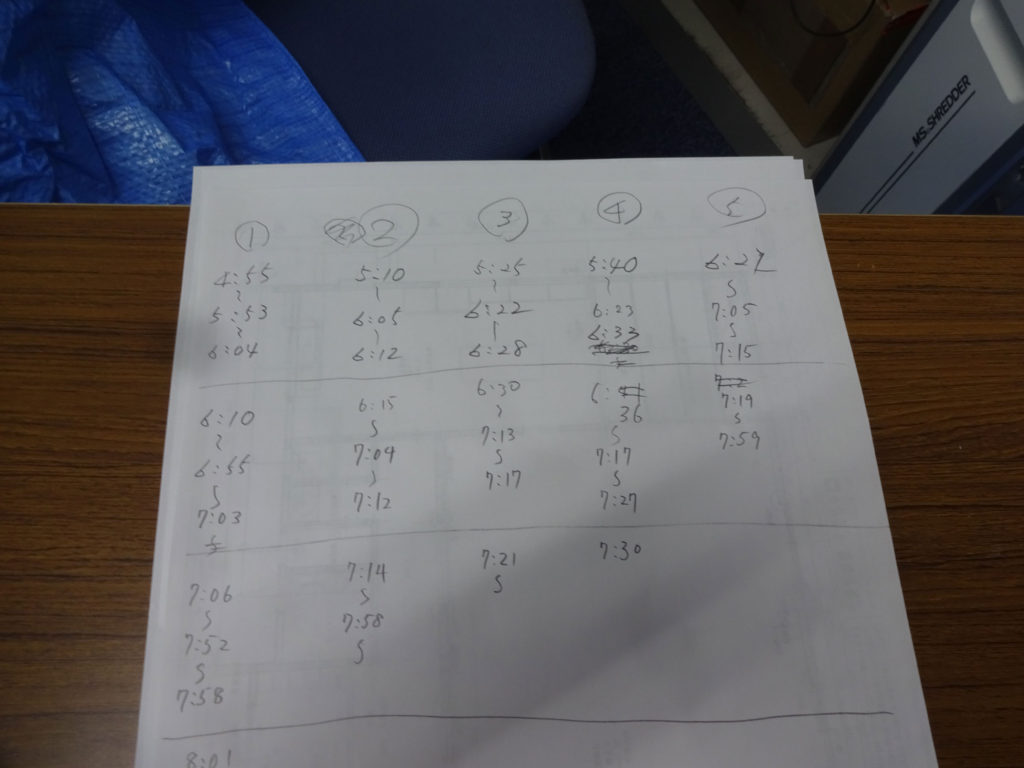 MS.SHREDDER
① ② ③ ④ ⑤
4:55 5:10 5:25 5:40 6:27
5:53 6:05 6:22 6:23 7:05
6:04 6:12 6:28 6:33 7:15
6:10 6:15 6:30 6:36 7:19
6:55 7:04 7:13 7:17 7:59
7:03 7:12 7:17 7:27
7:06 7:14 7:21 7:30
7:52 7:58
7:58
8:01